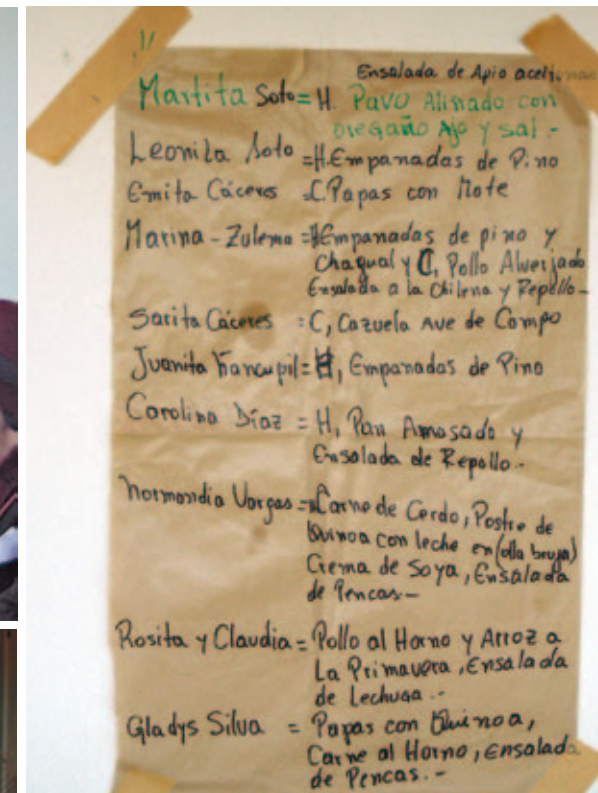 Ensalada de Apio aceitunas
Martita Soto = H. Pavo Aliñado con
oregaño Ajo y sal.-
Leonila Soto = H. Empanadas de Pino
Emita Cáceres = C. Papas con Mote
Marina - Zulema = H Empanadas de pino y
Chagual y C, Pollo Alverjado
Ensalada a la Chilena y Repollo-
Sarita Cáceres = C, Cazuela Ave de Campo
Juanita = H, Empanadas de Pino
Carolina Díaz = H, Pan Amasado y
Ensalada de Repollo.-
Normandia Vargas = Carne de Cerdo, Postre de
Quinoa con leche en (olla bruja)
Crema de Soya, Ensalada
de Pencas.-
Rosita y Claudia = Pollo al Horno y Arroz a
La Primavera, Ensalada
de Lechuga.-
Gladys Silva = Papas con Quinoa,
Carne al Horno, Ensalada
de Pencas.-